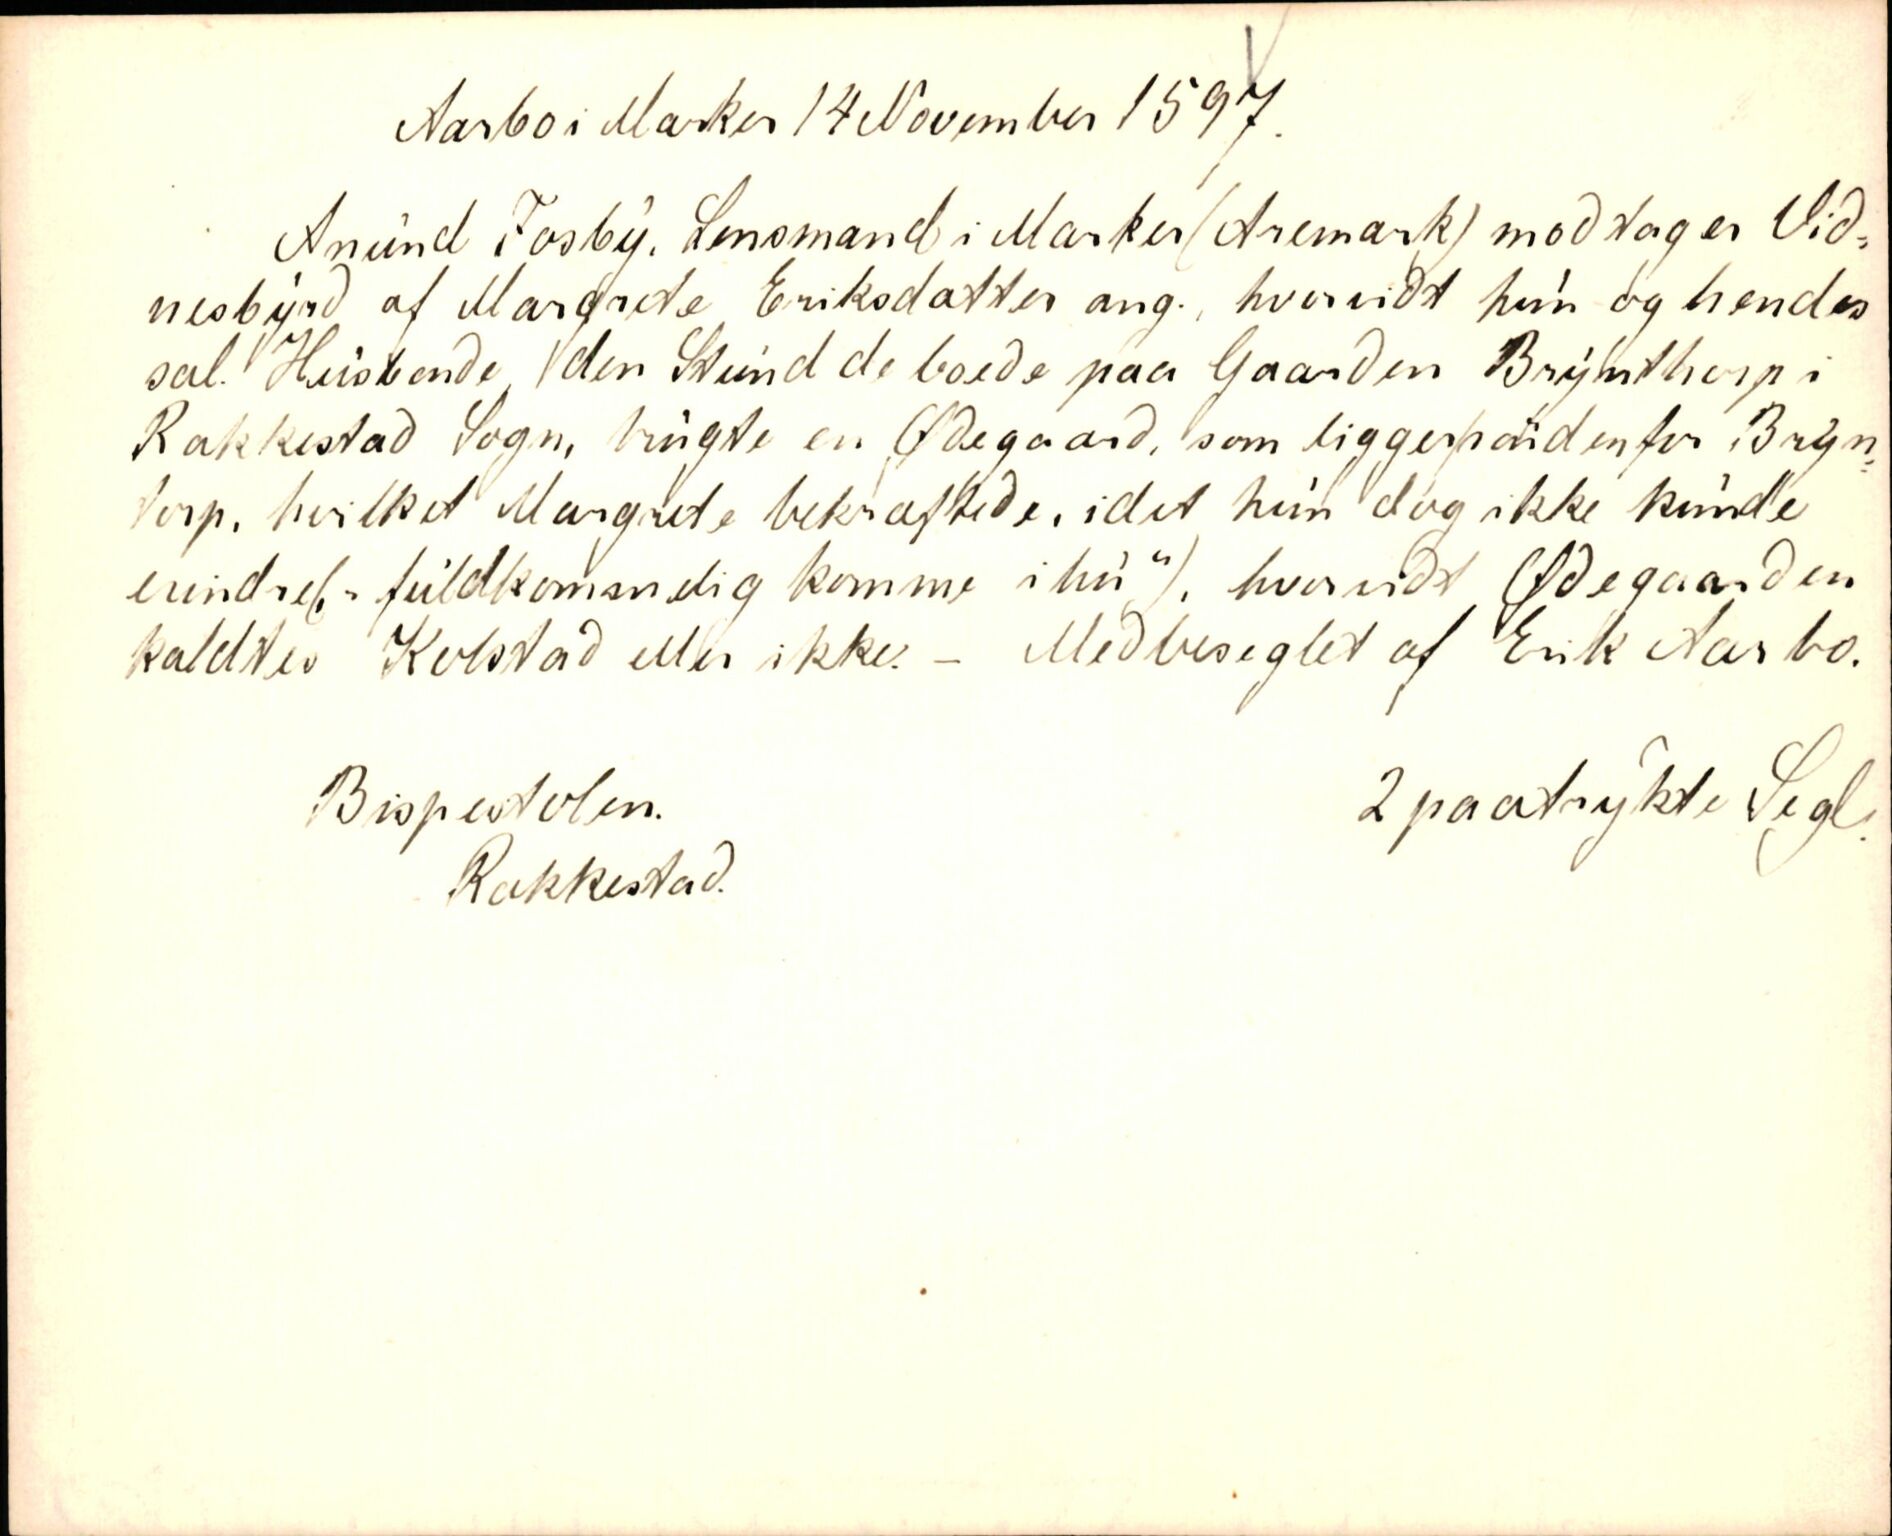 Aarbo i Marker 14 November 1597.
Anund Fosby, Lensmand i Marker (Aremark) modtager Vid-
nesbyrd af Margrete Eriksdatter ang., hvorvidt hun og hendes
sal. Husbonde, den Stund de boede paa Gaarden Brynthorp i
Rakkestad Sogn, brugte en Ødegaard, som ligger norden for Bryn-
torp, hvilket Margrete bekræftede, idet hun dog ikke kunde
erindre („fuldkommelig komme ihu“), hvorvidt Ødegaarden
kaldtes Kolstad eller ikke. – Medbeseglet af Erik Aarbo.
Bispestolen. 2 paatrykte Segl.
Rakkestad.